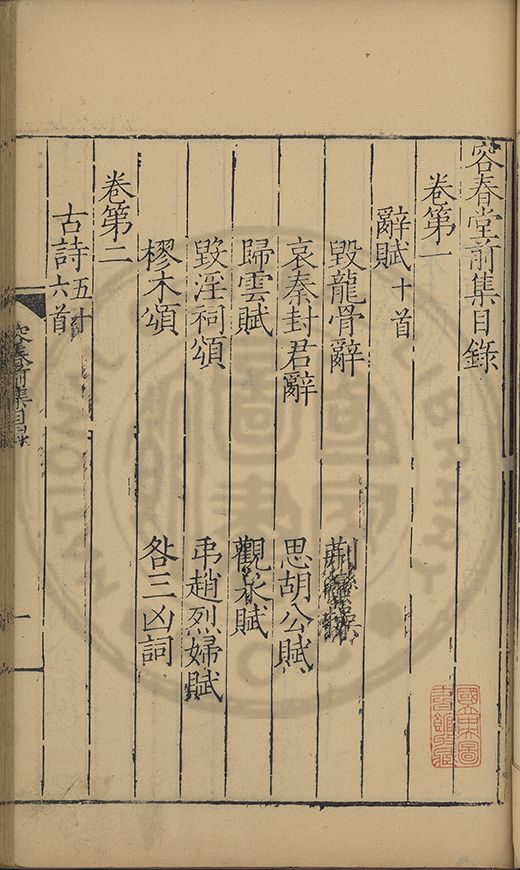 容春堂前集目錄
卷第一
辭賦十首
毀龍骨辭
哀秦封君辭 思胡公賦
歸雲賦 觀賦
毀淫祠頌 弔趙烈婦賦
樛禾頌 咎三凶詞
卷第二
古詩五十六首
容春前集目錄
一